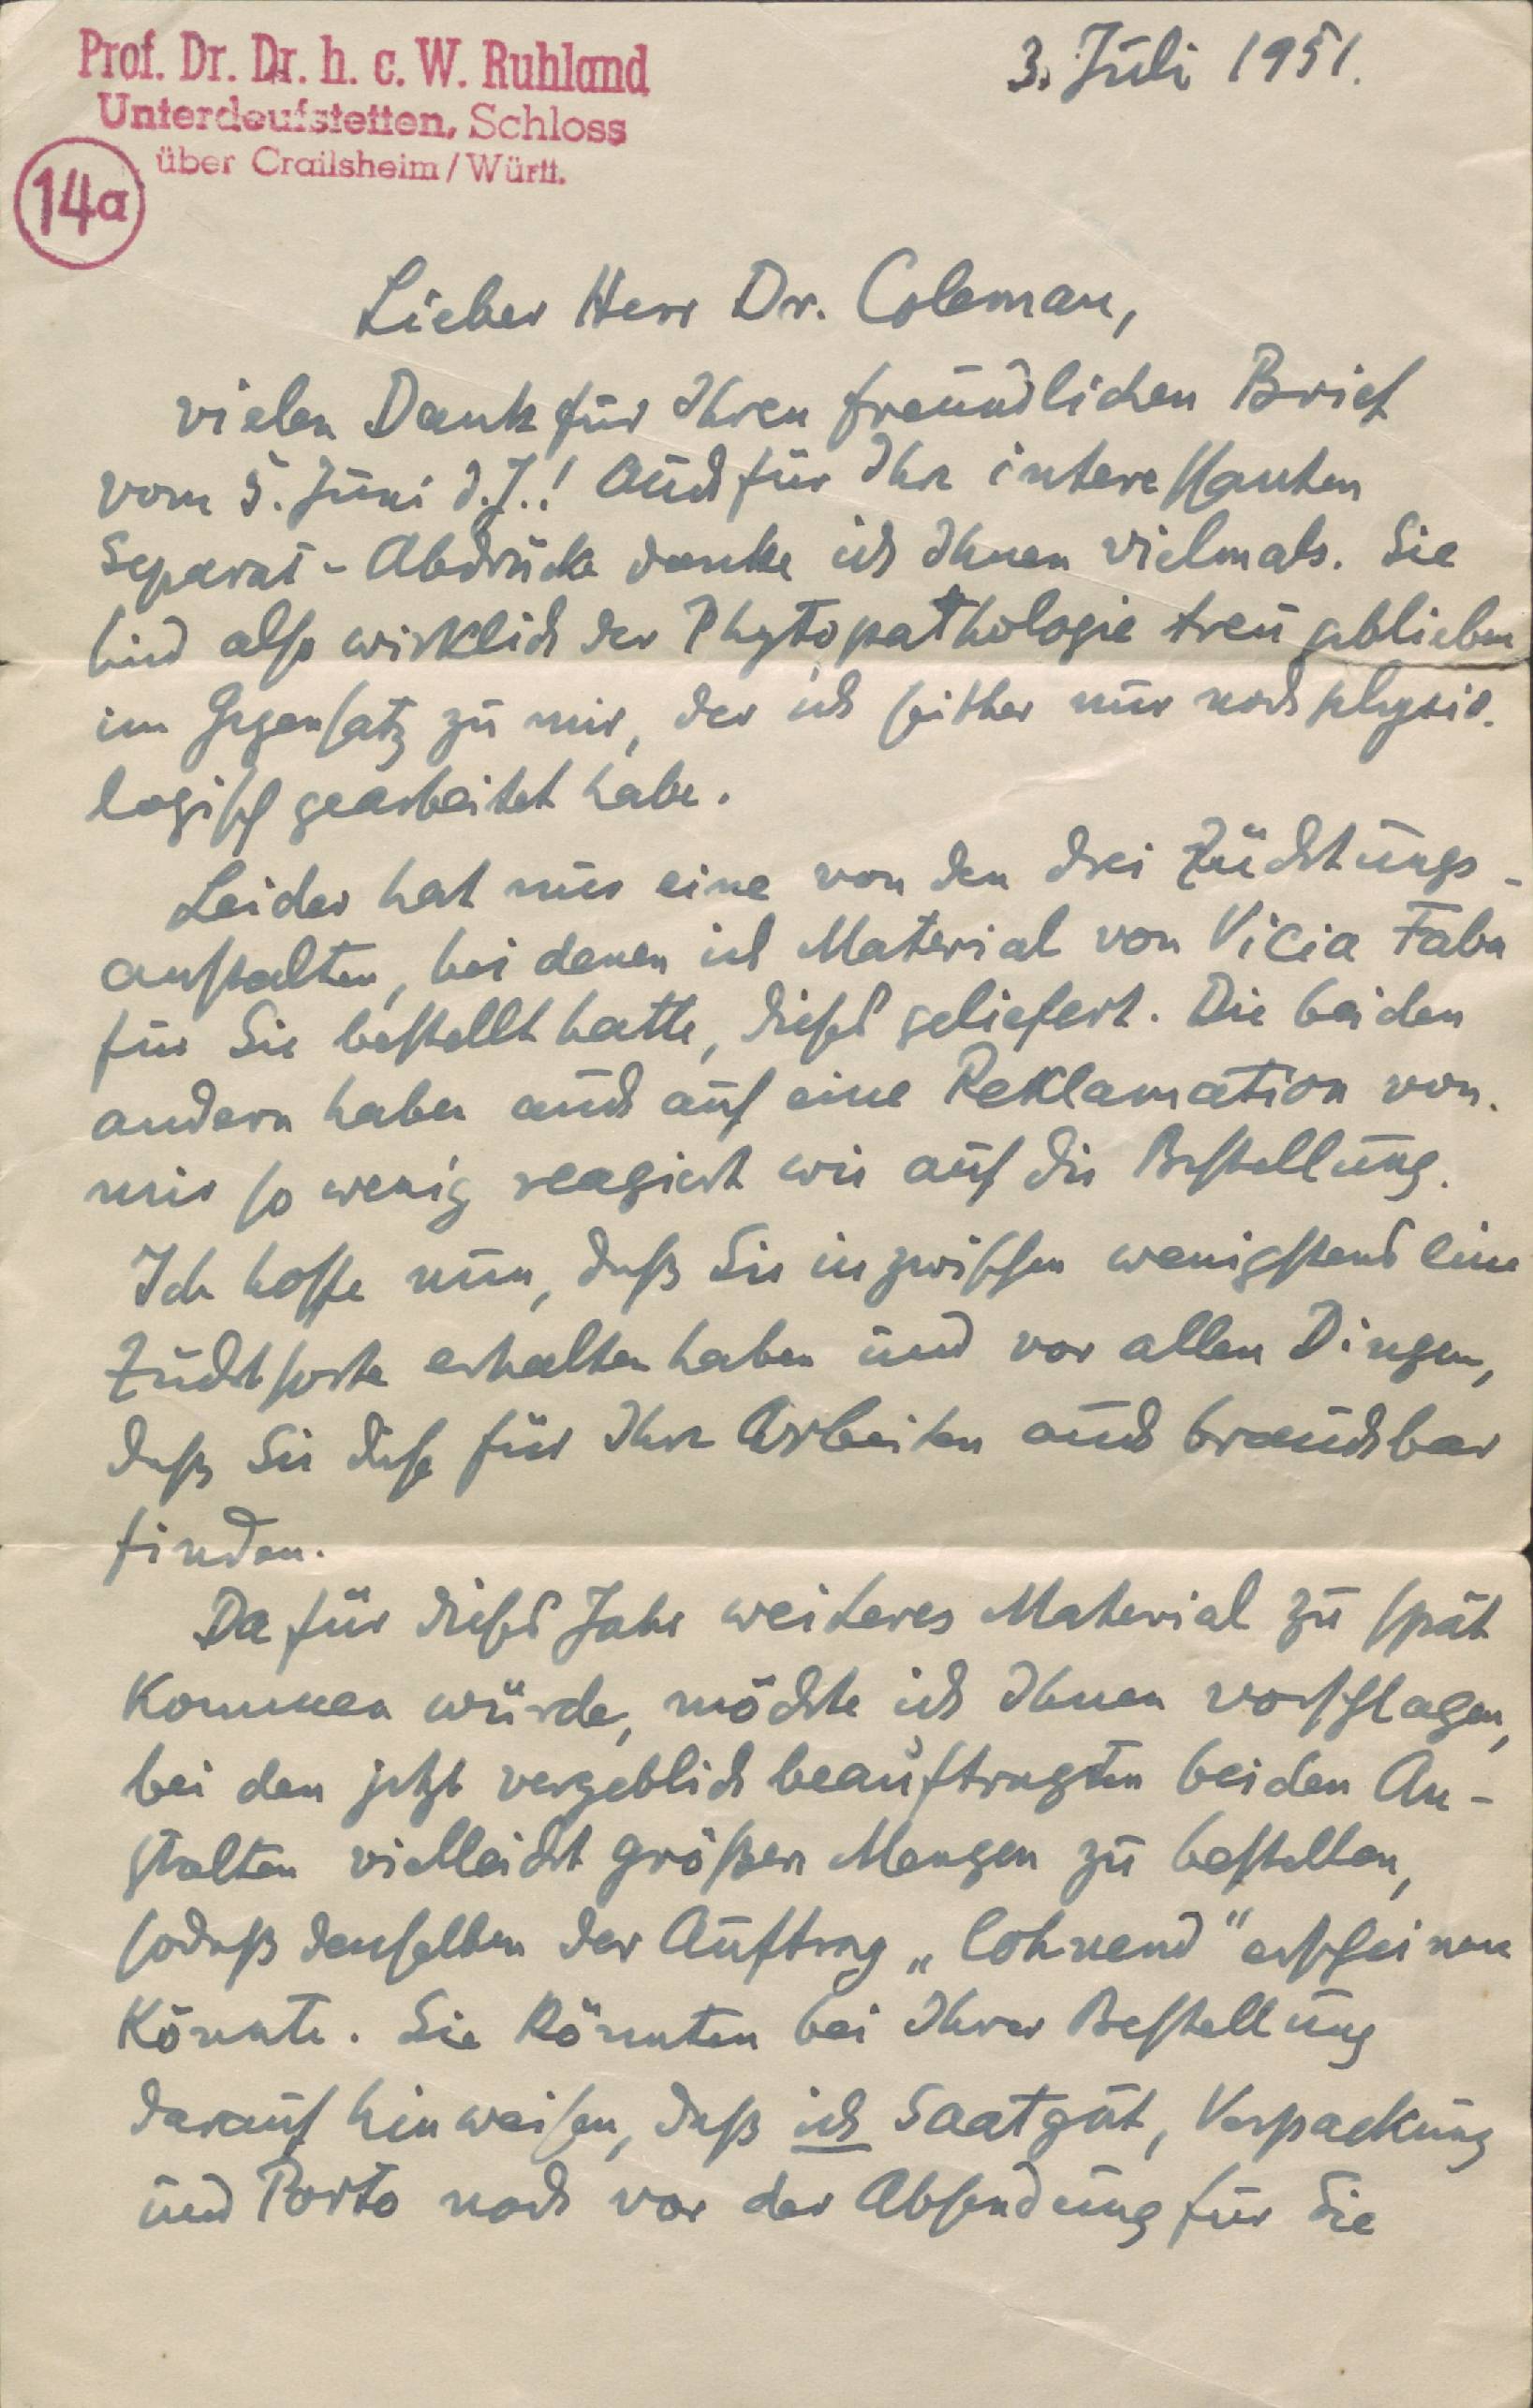 Prof. Dr. Dr. h. c. W. Ruhland
Unterdeufstetten, Schloss
über Crailsheim / Württ.
14a
3. Juli 1951.
Lieber Herr Dr. Coleman,
vielen Dank für Ihren freundlichen Brief
vom 5. Juni d. J..! Auch für Ihre interessanten
Separat-Abdrücke danke ich Ihnen vielmals. Sie
sind also wirklich der Phytopathologie treu geblieben
im Gegensatz zu mir, der ich seither nur noch physio-
logisch gearbeitet habe.
Leider hat nur eine von den drei Züchtungs-
anstalten, bei denen ich Material von Vicia Faba
für Sie bestellt hatte, dieses geliefert. Die beiden
andern haben auch auf eine Reklamation von
mir so wenig reagiert wie auf die Bestellung.
Ich hoffe nun, daß Sie inzwischen wenigstens eine
Zuchtsorte erhalten haben und vor allen Dingen,
daß Sie diese für Ihre Arbeiten auch brauchbar
finden.
Da für dieses Jahr weiteres Material zu spät
kommen würde, möchte ich Ihnen vorschlagen,
bei den jetzt vergeblich beauftragten beiden An-
stalten vielleicht größere Mengen zu bestellen,
sodaß denselben der Auftrag „lohnend" erscheinen
könnte. Sie könnten bei Ihrer Bestellung
darauf hinweisen, daß ich Saatgut, Verpackung
und Porto noch vor der Absendung für Sie